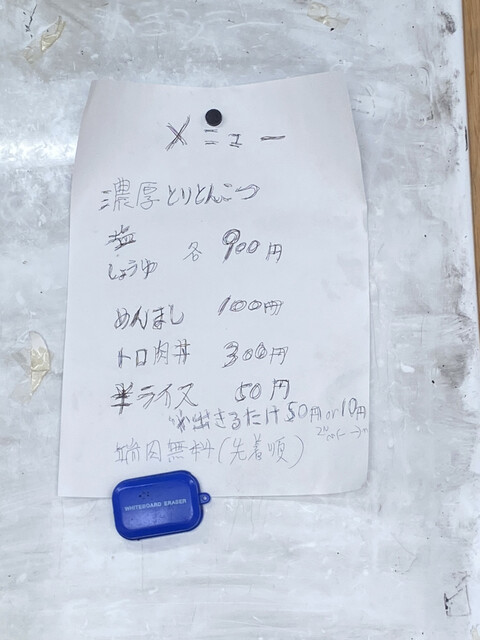 メニュー
濃厚とりとんこつ
塩
しょうゆ 各 900円
めんまし 100円
トロ肉丼 300円
半ライス 50円
出きるだけ50円or10円
端肉無料(先着順)
WHITEBOARD ERASER